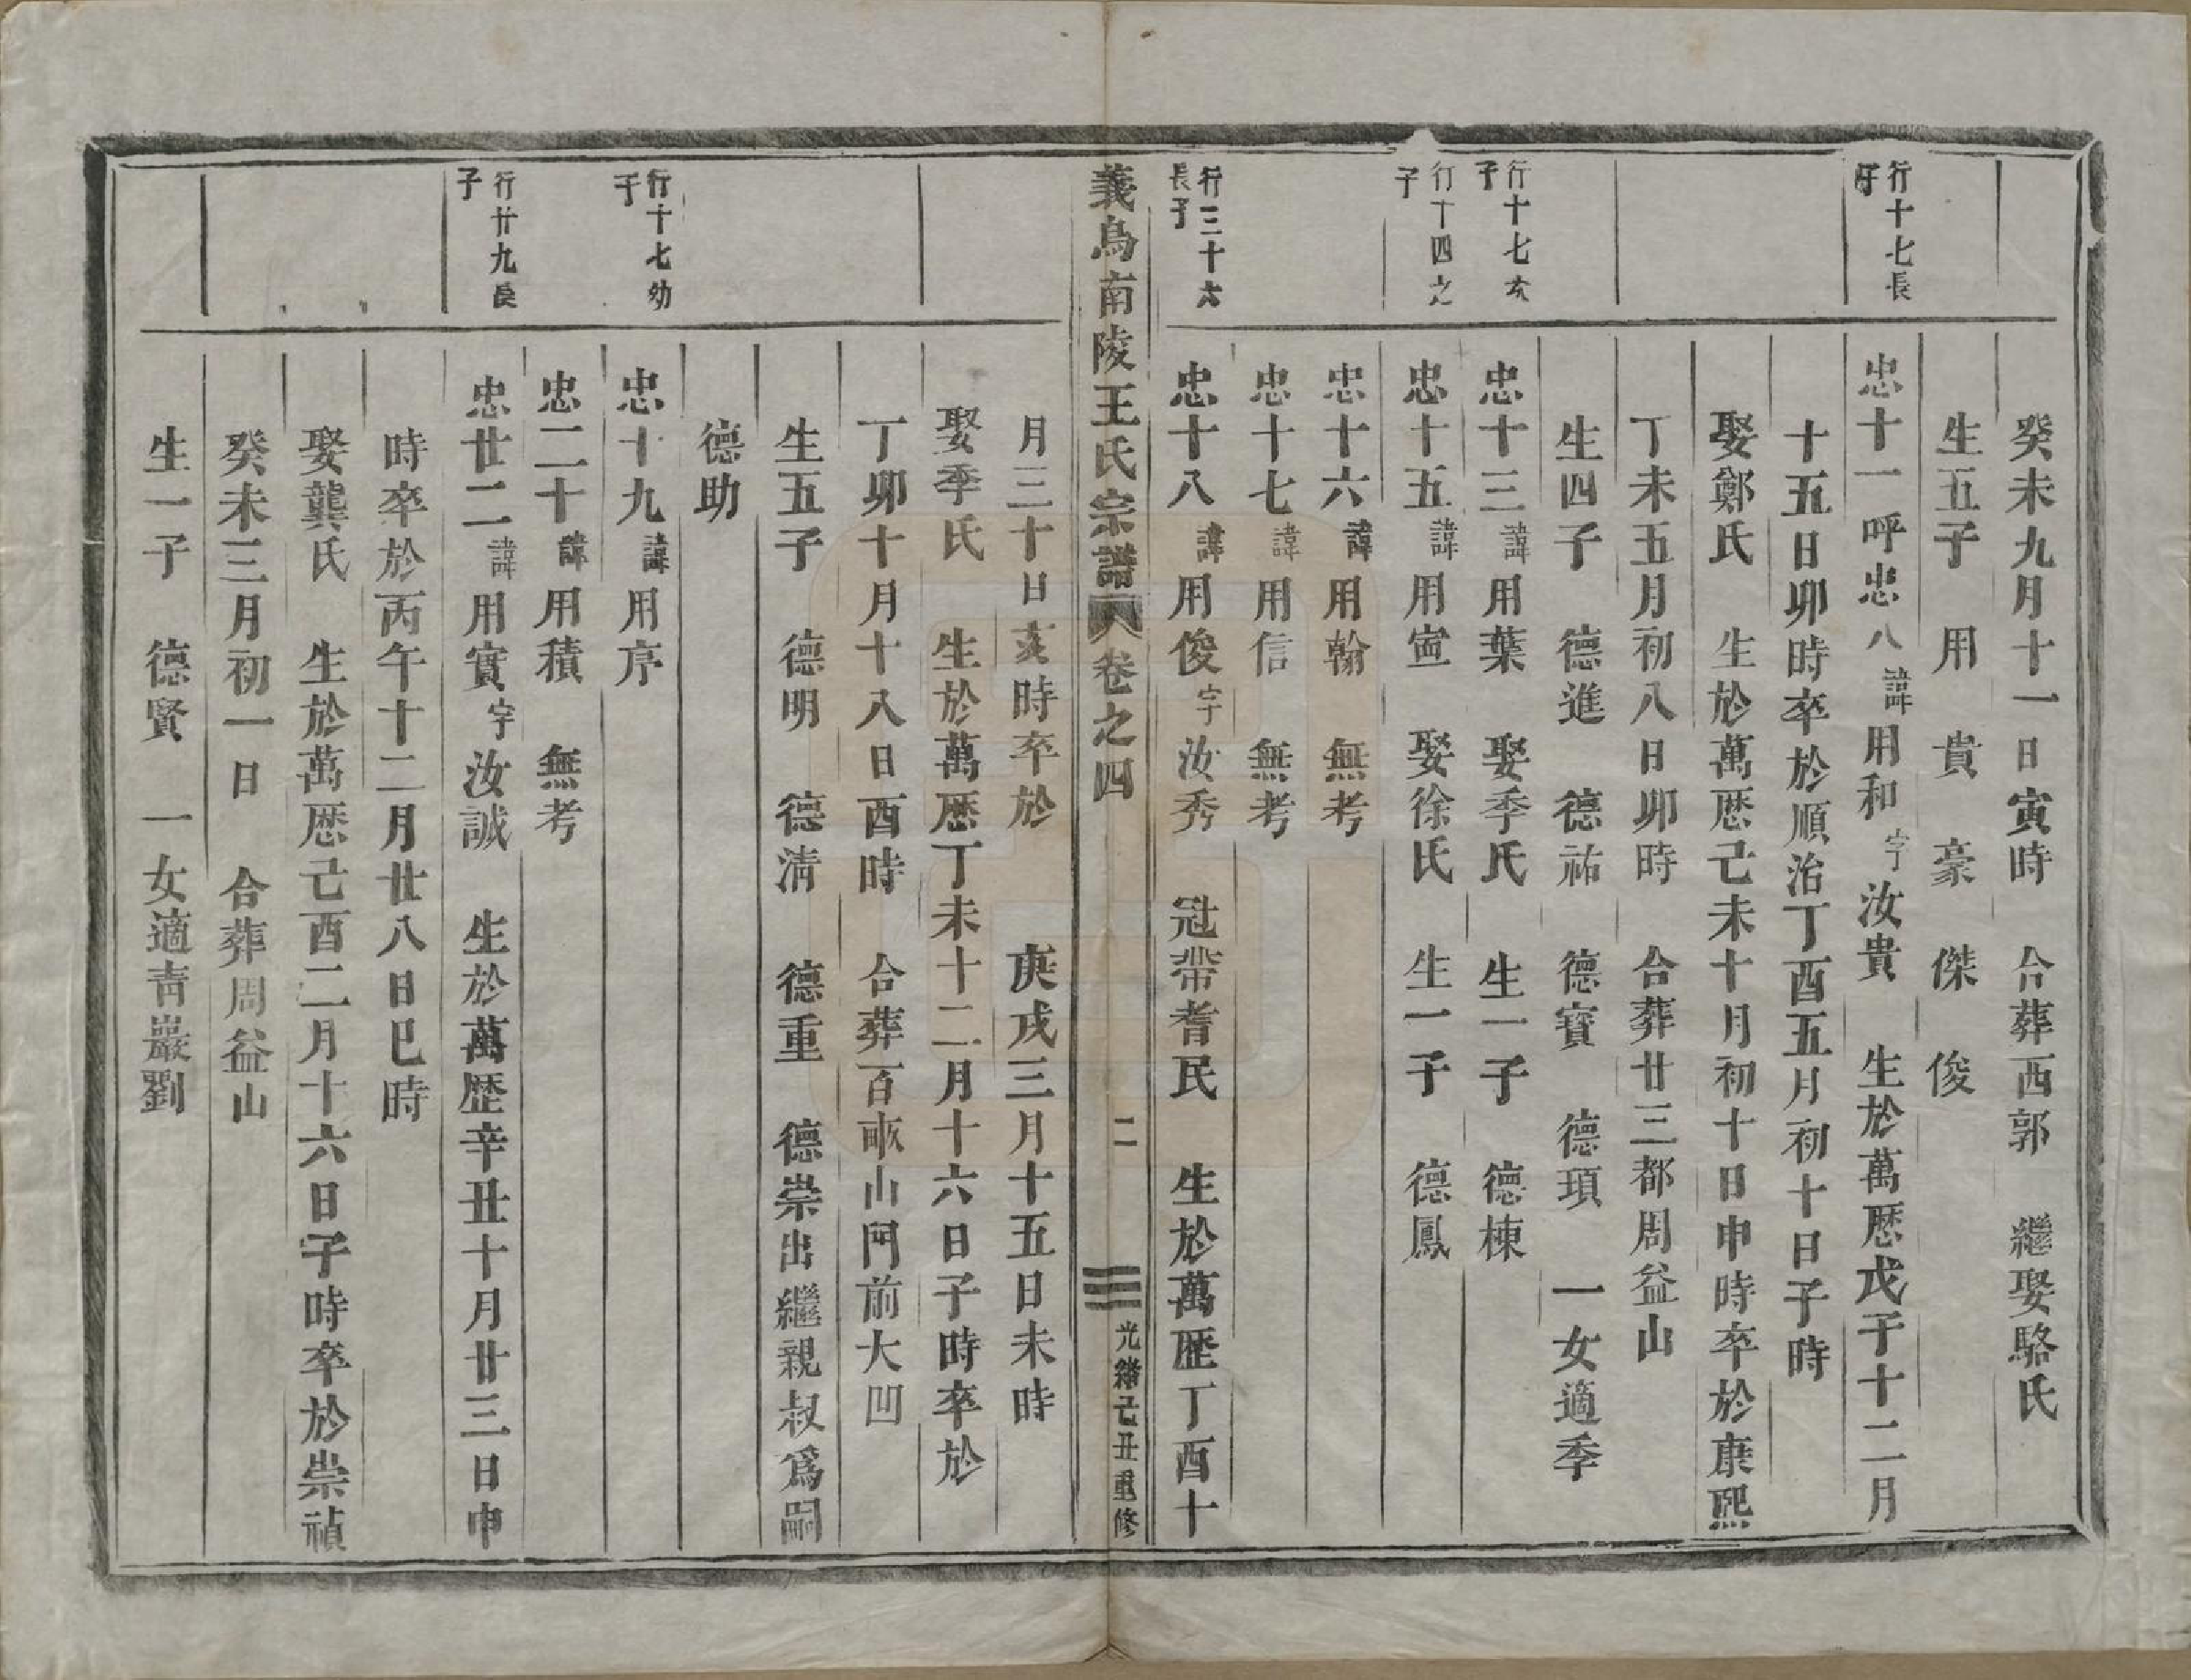 癸未九月十一日寅時　合葬西郭　繼娶駱氏
生五子　用　貴　豪　傑　俊
行十七長子
忠十一呼忠八諱用和字汝貴　生於萬歷戊子十二月
十五日卯時卒於順治丁酉五月初十日子時
娶鄭氏　生於萬歷己未十月初十日申時卒於康熙
丁未五月初八日卯時　合葬廿三都周益山
生四子　德進　德祐　德寶　德頊　一女適季
行十七次子
忠十三諱用葉　娶季氏　生一子　德棟
行十四之子
忠十五諱用宙　娶徐氏　生一子　德鳳
忠十六諱用翰　無考
忠十七諱用信　無考
行三十六長子
忠十八諱用俊字汝秀　冠帶耆民　生於萬歷丁酉十
義烏南陵王氏宗譜　卷之四　二　光緒己丑重修
月三十日亥時卒於　庚戌三月十五日未時
娶季氏　生於萬歷丁未十二月十六日子時卒於
丁卯十月十八日酉時　合葬百畝山門前大凹
生五子　德明　德淸　德重　德崇出繼親叔爲嗣
德助
行十七幼子
忠十九諱用序
忠二十諱用積　無考
行廿九長子
忠廿二諱用實字汝誠　生於萬歷辛丑十月廿三日申
時卒於丙午十二月廿八日巳時
娶龔氏　生於萬歷己酉二月十六日子時卒於崇禎
癸未三月初一日　合葬周益山
生一子　德賢　一女適靑巖劉